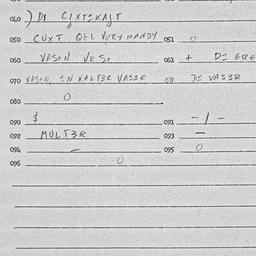 040 ) DI CIXTIKAJT
050 CUXT QEL VERY HANDY 051 0
060 VASIN VES. 061 + DI ERE
070 VASIN, IN KALT3R VAS3R 071 DI VAS3R
080 0
090 $ 091 - / -
092 MULT3R 093 -
094 - 095 0
096 0